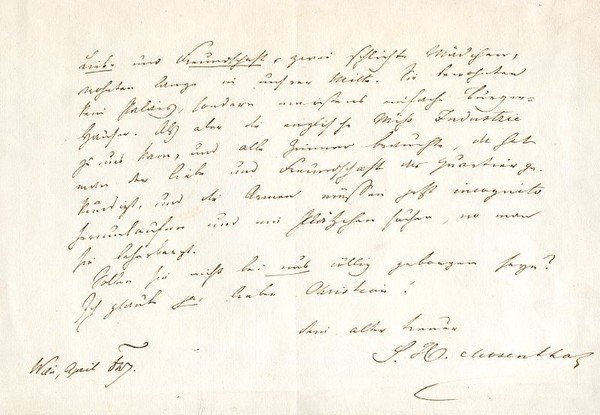 Liebe und Freundschaft, zwei schlichte Mädchen,
wohnten lange in unsrer Mitte. Sie bewohnten
kein Palais, sondern meistens einfache Bürger-
häuser. Als aber die englische Miß Industrie
zu uns kam, und alle Zimmer brauchte, da hat
man der Liebe und Freundschaft das Quartier ge-
kündigt, und die Armen müssen jetzt incognito
herumlaufen und ein Plätzchen suchen, wo man
sie beherbergt.
Sollen sie nicht bei uns völlig geborgen seyn?
Ich glaube ja, lieber Christian!
Dein alter treuer
S. H. Mosenthal
Wien, April